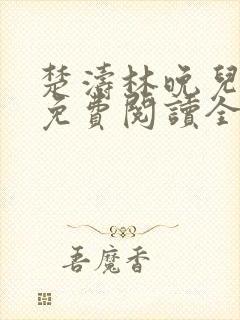 楚濤林晚兒
免費閱讀全
吾魔香